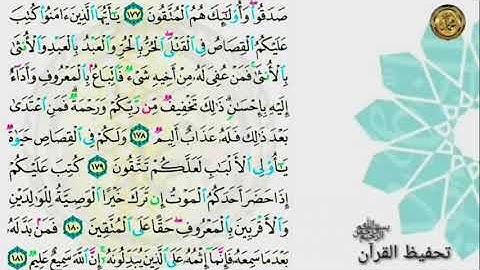 صَدَقُوا۟ وَأُو۟لَـٰٓئِكَ هُمُ ٱلْمُتَّقُونَ ١٧٧ يَـٰٓأَيُّهَا ٱلَّذِينَ ءَامَنُوا۟ كُتِبَ
عَلَيْكُمُ ٱلْقِصَاصُ فِى ٱلْقَتْلَى ٱلْحُرُّ بِٱلْحُرِّ وَٱلْعَبْدُ بِٱلْعَبْدِ وَٱلْأُنثَىٰ
بِٱلْأُنثَىٰ فَمَنْ عُفِىَ لَهُۥ مِنْ أَخِيهِ شَىْءٌ فَٱتِّبَاعٌۢ بِٱلْمَعْرُوفِ وَأَدَآءٌ
إِلَيْهِ بِإِحْسَـٰنٍ ذَٰلِكَ تَخْفِيفٌ مِّن رَّبِّكُمْ وَرَحْمَةٌ فَمَنِ ٱعْتَدَىٰ
بَعْدَ ذَٰلِكَ فَلَهُۥ عَذَابٌ أَلِيمٌ ١٧٨ وَلَكُمْ فِى ٱلْقِصَاصِ حَيَوٰةٌ
يَـٰٓأُو۟لِى ٱلْأَلْبَـٰبِ لَعَلَّكُمْ تَتَّقُونَ ١٧٩ كُتِبَ عَلَيْكُمْ
إِذَا حَضَرَ أَحَدَكُمُ ٱلْمَوْتُ إِن تَرَكَ خَيْرًا ٱلْوَصِيَّةُ لِلْوَٰلِدَيْنِ
وَٱلْأَقْرَبِينَ بِٱلْمَعْرُوفِ حَقًّا عَلَى ٱلْمُتَّقِينَ ١٨٠ فَمَنۢ بَدَّلَهُۥ
بَعْدَمَا سَمِعَهُۥ فَإِنَّمَآ إِثْمُهُۥ عَلَى ٱلَّذِينَ يُبَدِّلُونَهُۥٓ إِنَّ ٱللَّهَ سَمِيعٌ عَلِيمٌ ١٨١
تحفيظ القرآن